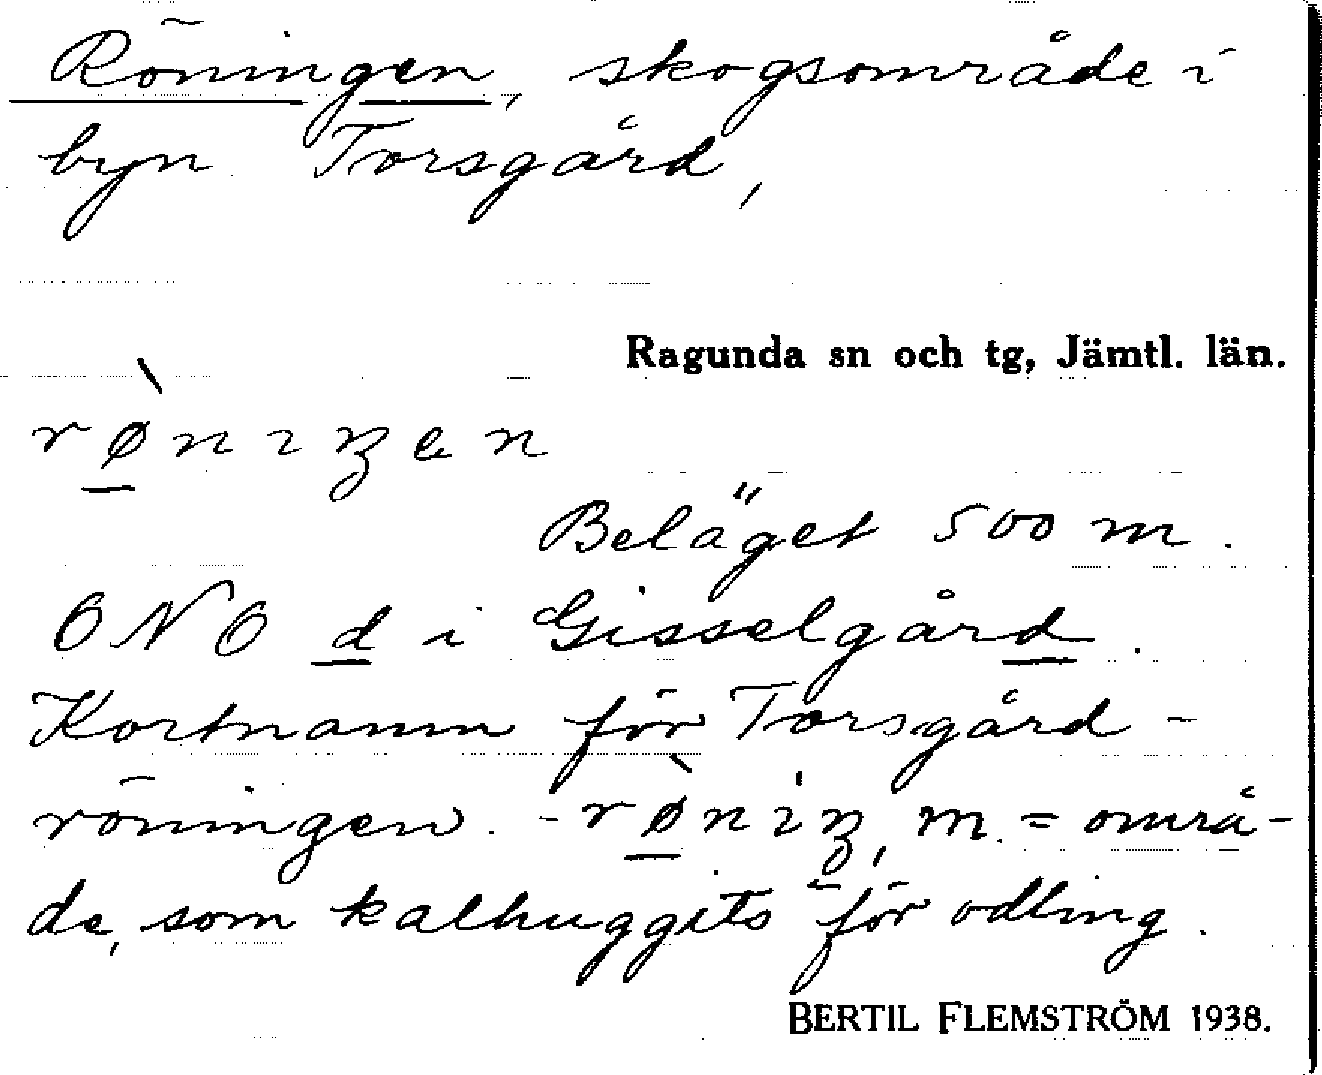 Röningen, skogsområde i
byn Torsgård,
Ragunda sn och tg, Jämtl. län.
rø̲̀niŋen
Beläget 500 m.
ONO d i Gisselgård.
Kortnamn för Torsgård-
röningen. - rø̲̀niŋ, m. = områ-
de, som kalhuggits för odling.
BERTIL FLEMSTRÖM 1938.